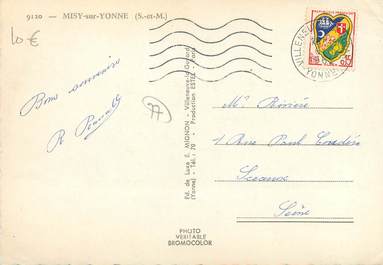 9120 - MISY-sur-YONNE (S.-et-M.)
10 €
VILLENEU
YONNE
Bons souvenirs
R
77
Ed. de Luxe E. MIGNON - Villeneuve-la-Guyard
(Yonne) - Tél.: 70 Production ESTEL - Paris
Mr Rivière
1 Rue Paul Couderc
Sceaux
Seine
PHOTO
VERITABLE
BROMOCOLOR